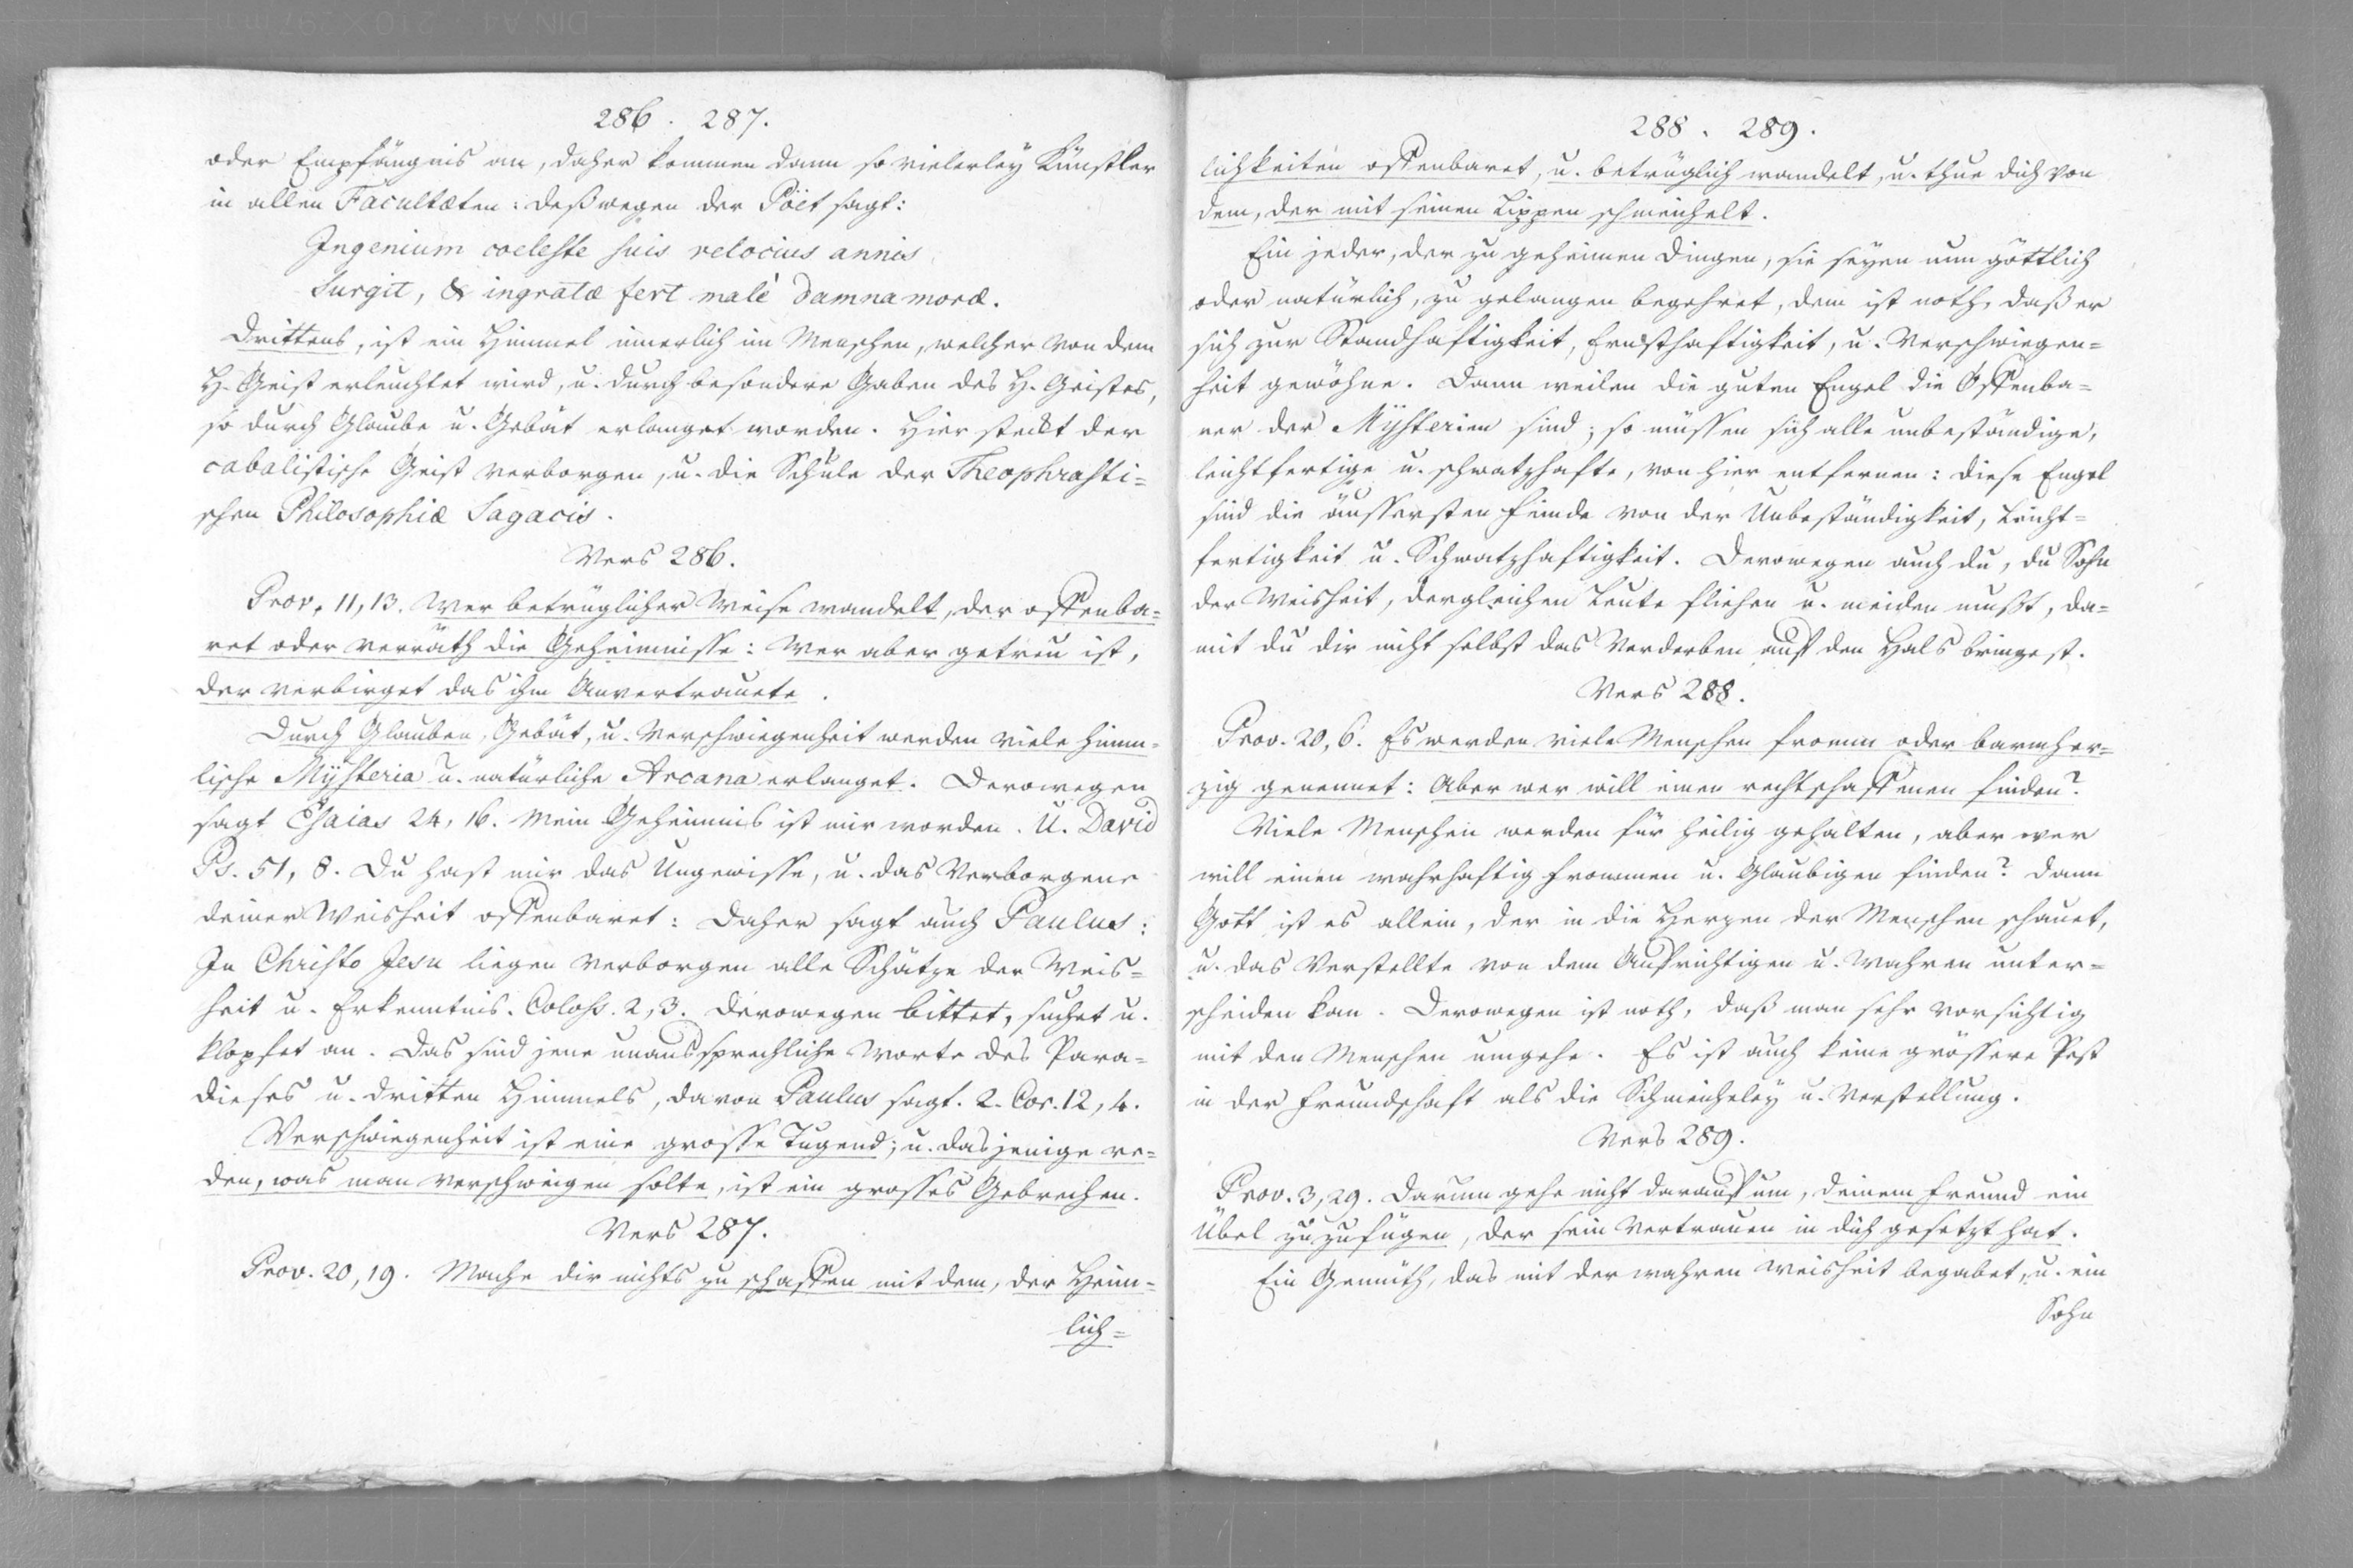 286. 287.
oder Empfängnis an, daher kommen dann so vielerley Künstler
in allen Facultæten: deßwegen der Poët sagt:
Ingenium coeleste suis velocius annis
Surgit, & ingratæ fert malè damna moræ.
Drittens, ist ein Himmel innerlich im Menschen, welcher von dem
H. Geist erleuchtet wird, u. durch besondere Gaben des H. Geistes,
so durch Glaube u. Gebät erlanget worden. Hier steckt der
cabalistische Geist verborgen, u. die Schule der Theophrasti=
schen Philosophiæ Sagacis.
Vers 286.
Prov. 11, 13. Wer betrüglicher Weise wandelt, der offenba=
ret oder verräth die Geheimnisse: Wer aber getreu ist,
der verbirget das ihm Anvertrauete.
Durch Glauben, Gebät, u. Verschwiegenheit werden viele himm=
lische Mysteria u. natürliche Arcana erlanget. Derowegen
sagt Esaias 24, 16. Mein Geheimnis ist mir worden. U. David
Ps. 51, 8. Du hast mir das Ungewisse, u. das Verborgene
deiner Weisheit offenbaret: Daher sagt auch Paulus:
In Christo Jesu liegen verborgen alle Schätze der Weis=
heit u. Erkenntnis. Coloss. 2, 3. Derowegen bittet, suchet u.
klopfet an. Das sind jene unaussprechliche Worte des Para=
dieses u. dritten Himmels, davon Paulus sagt. 2. Cor. 12, 4.
Verschwiegenheit ist eine grosse Tugend; u. dasjenige re=
den, was man verschweigen solte, ist ein grosses Gebrechen.
Vers 287.
Prov. 20, 19. Mache dir nichts zu schaffen mit dem, der Heim=
lich=
288. 289.
lichkeiten offenbaret, u. betrüglich wandelt, u. thue dich von
dem, der mit seinen Lippen schmeichelt.
Ein jeder, der zu geheimen Dingen, sie seyen nun göttlich
oder natürlich, zu gelangen begehret, dem ist noth, daß er
sich zur Standhaftigkeit, Ernsthaftigkeit, u. Verschwiegen=
heit gewöhne. Dann weilen die guten Engel die Offenba=
rer der Mysterien sind; so müssen sich alle unbeständige,
leichtfertige u. schwatzhafte, von hier entfernen: diese Engel
sind die äussersten Feinde von der Unbeständigkeit, Leicht=
fertigkeit u. Schwatzhaftigkeit. Derowegen auch du, du Sohn
der Weisheit, dergleichen Leute fliehen u. meiden mußt, da=
mit du dir nicht selbst das Verderben auf den Hals bringest.
Vers 288.
Prov. 20, 6. Es werden viele Menschen fromm oder barmher=
zig genennet: Aber wer will einen rechtschaffenen finden?
Viele Menschen werden für heilig gehalten, aber wer
will einen wahrhaftig frommen u. Glaubigen finden? Dann
Gott ist es allein, der in die Herzen der Menschen schauet,
u. das Verstellte von dem Aufrichtigen u. Wahren unter=
scheiden kan. Derowegen ist noth, daß man sehr vorsichtig
mit den Menschen umgehe. Es ist auch keine grössere Pest
in der Freundschaft als die Schmeicheley u. Verstellung.
Vers 289.
Prov. 3, 29. Darum gehe nicht darauf um, deinem Freund ein
Übel zuzufügen, der sein Vertrauen in dich gesetzt hat.
Ein Gemüth, das mit der wahren Weisheit begabet, u. ein
Sohn